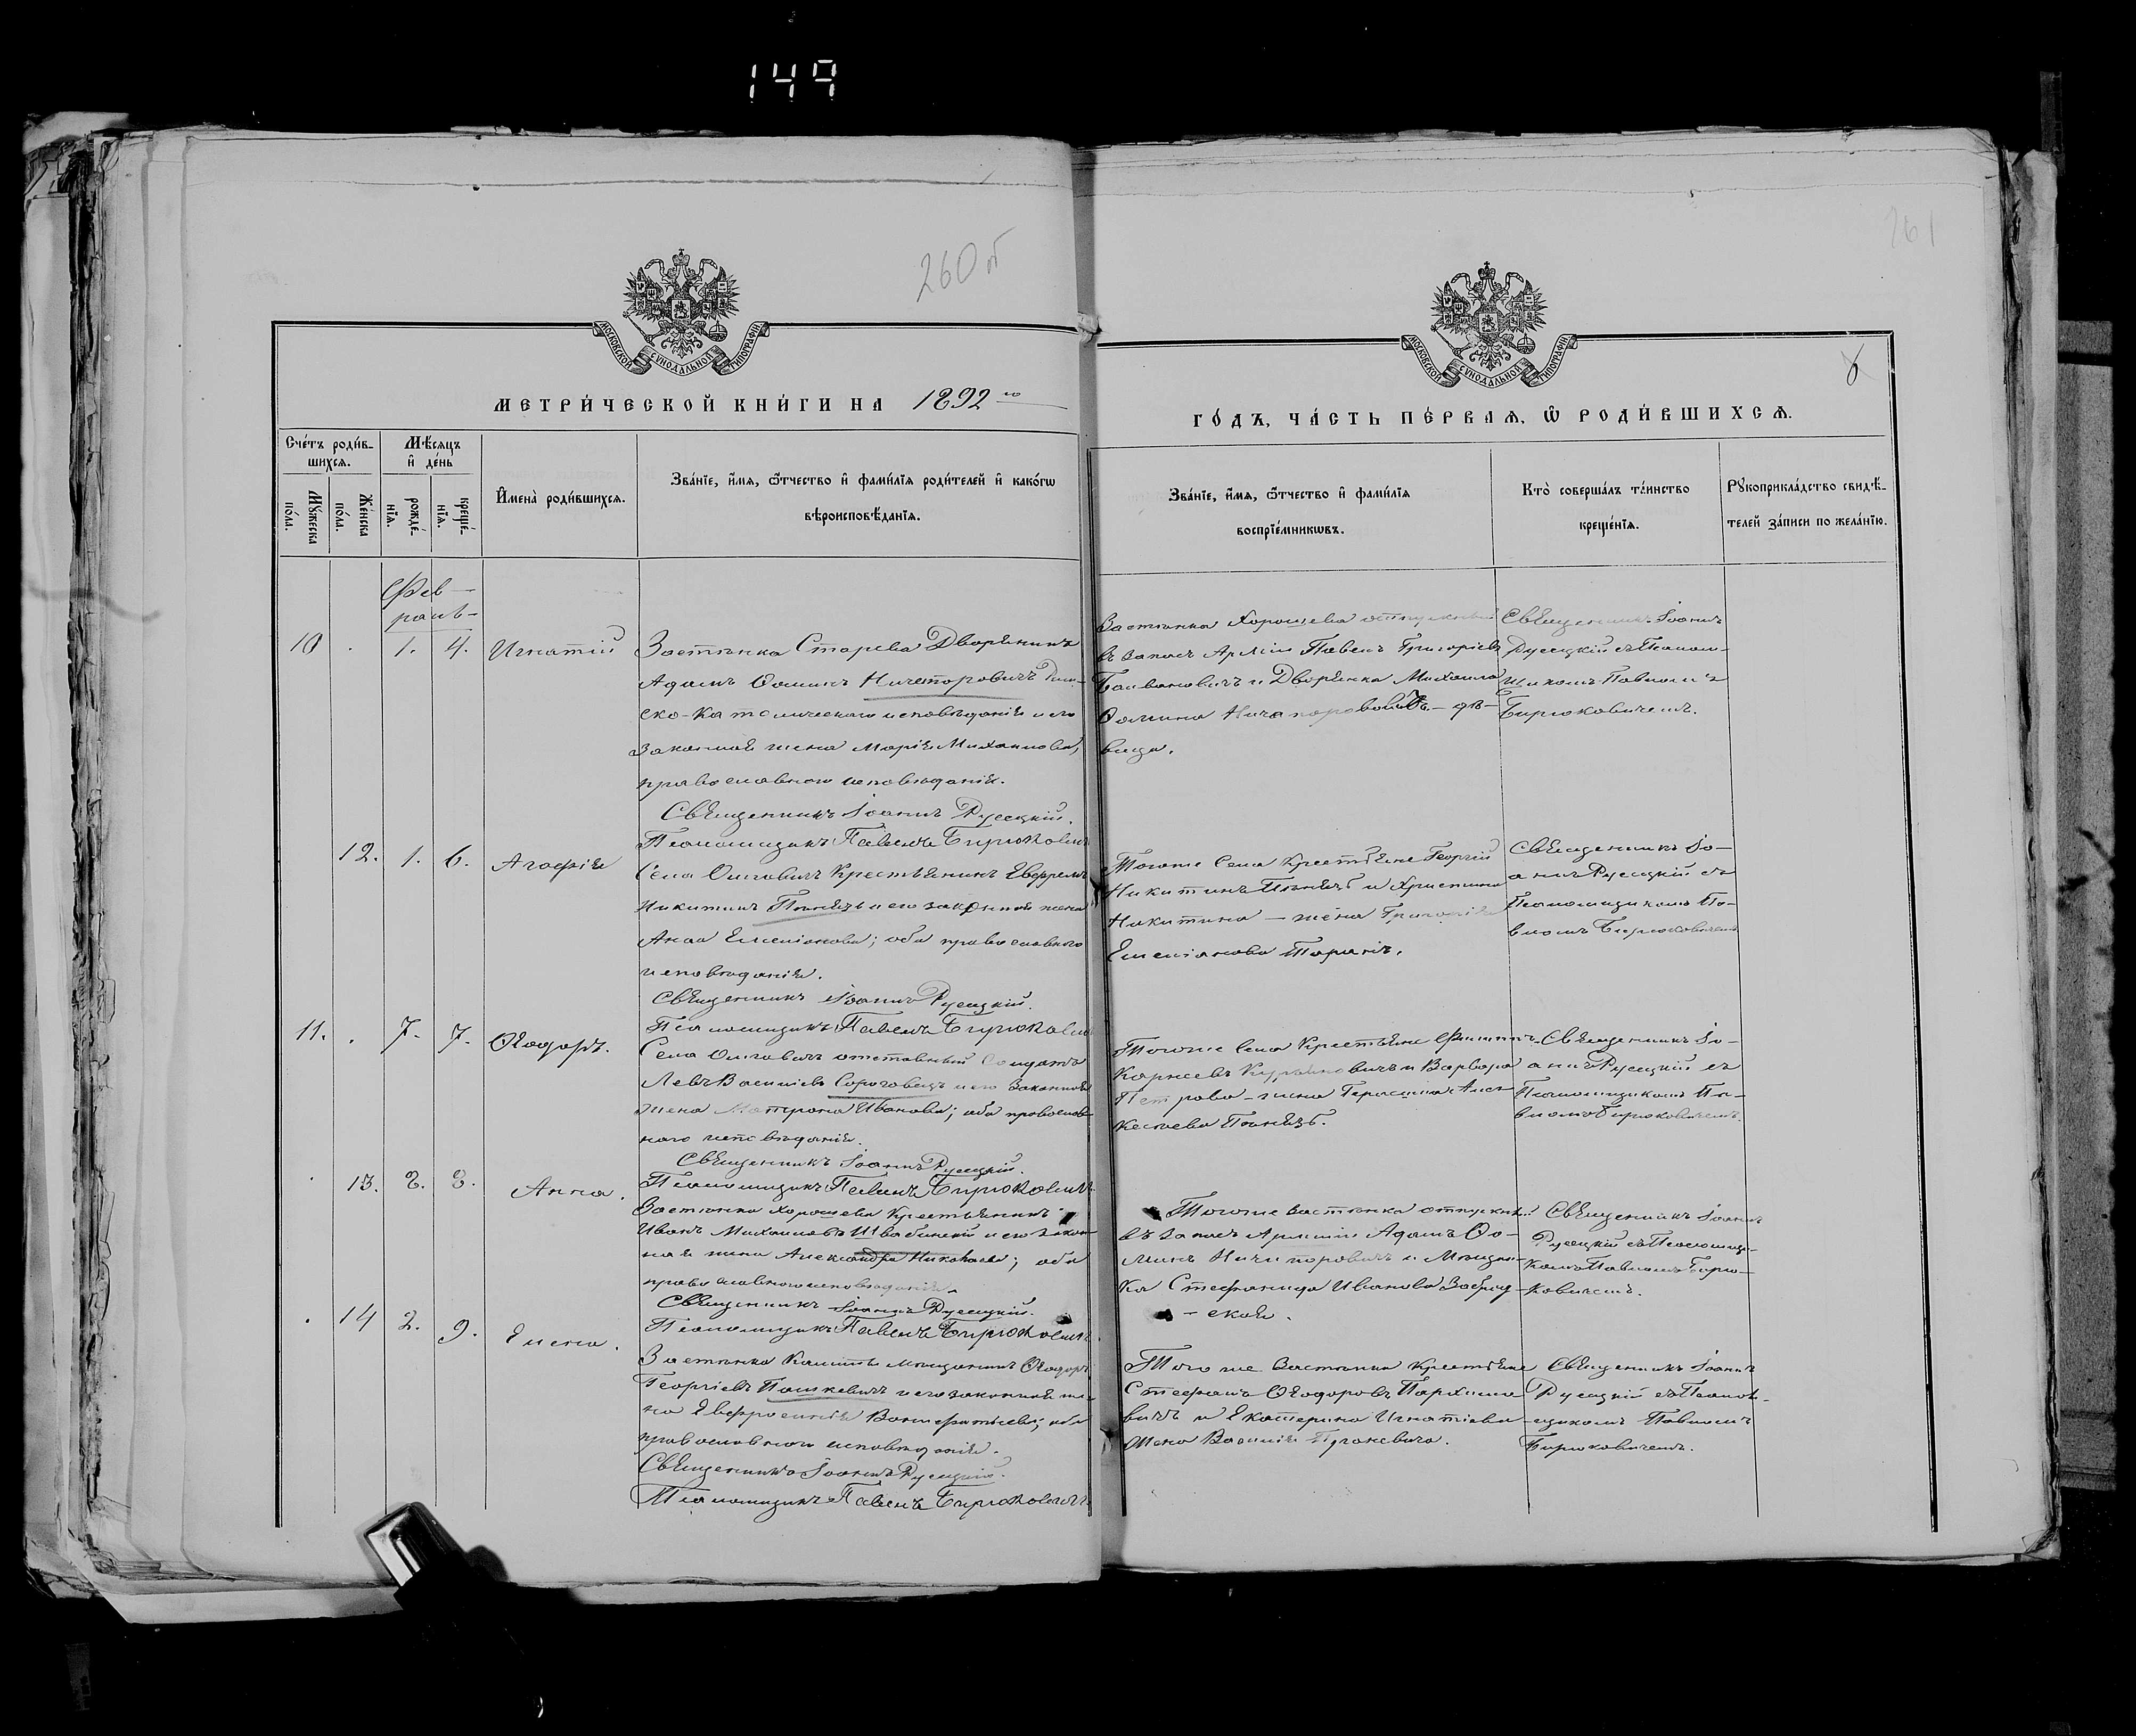 149
260 об
261
МОСКОВСКОЙ СѴНОДАЛЬНОЙ ТИПОГРАФІИ
МОСКОВСКОЙ СѴНОДАЛЬНОЙ ТИПОГРАФІИ
8
МЕТРИ́ЧЕСКОЙ КНИ́ГИ НА 1892 го
ГО́ДЪ, ЧА́СТЬ ПЕ́РВАѦ, Ѡ҆ РОДИ́ВШИХСѦ.
Сче́тъ роди́в-
шихсѧ.
Мꙋжеска
по́ла.
Же́нска
по́ла.
Мѣ́сяцъ
и҆ де́нь
рожде́-
нїѧ.
креще́-
нїѧ.
И҆мена̀ роди́вшихсѧ.
Зва́нїе, и҆́мѧ, ѻ҆́тчество и҆ фами́лїѧ роди́телей и҆ како́гѡ
вѣроисповѣ́данїѧ.
Зва́нїе, и҆́мѧ, ѻ҆́тчество и҆ фами́лїѧ
воспрїе́мникѡвъ.
Кто̀ соверша́лъ та́инство
креще́нїѧ.
Рꙋкоприкла́дство свидѣ́-
телей за́писи по жела́нїю.
Фев-
раль-
10 . 1. 4. Игнатій
Застѣнка Старева Дворянинъ
Адамъ Ѳоминъ Ничепоровичъ Рим-
ско-Католическаго исповѣданія и его
законная жена Марія Михаилова,
православнаго исповѣданія.
Священникъ Іоаннъ Русецкій.
Псаломщикъ Павелъ Бирюковичъ
Застѣнка Хорошева отпускный
въ запасъ Арміи Павелъ Григоріевъ
и Дворянка Михалина
Ѳомина Ничапоровичъ - дѣ-
вица.
Священникъ Іоаннъ
Русецкій съ Псалом-
щикомъ Павломъ
Бирюковичемъ.
12. 1. 6. Агафія
Села Ольговичъ Крестьянинъ Евфремъ
Никитинъ Понязь и его законная жена
Анна Емеліанова; оба православнаго
исповѣданія.
Священникъ Іоаннъ Русецкій.
Псаломщикъ Павелъ Бирюковичъ
Тогоже Села Крестьяне Георгій
Никитинъ Понязь и Христина
Никитина - жена Григорія
Емеліанова Таранъ.
Священникъ Іо-
аннъ Русецкій съ
Псаломщикомъ Па-
вломъ Бирюковичемъ
11. . 7. 7. Ѳеодоръ.
Села Ольговичъ отставный Солдатъ
Левъ Васильевъ Сороговецъ и его Законная
жена Матрона Иванова; оба православ-
наго исповѣданія.
Священникъ Іоаннъ Русецкій.
Псаломщикъ Павелъ Бирюковичъ
Тогоже Села Крестьяне Филиппъ
Карнеевъ и Варвара
Петрова - жена Герасима Алек-
сеева Понязь.
Священникъ Іо-
аннъ Русецкій съ
Псаломщикомъ Па-
вломъ Бирюковичемъ.
. 13. 8. 8. Анна.
Застѣнка Хорошева Крестьянинъ
Иванъ Михаиловъ Швабинскій и его Закон-
ная жена Александра Николаева; оба
православного исповѣданія.
Священникъ Іоаннъ Русецкій.
Псаломщикъ Павелъ Бирюковичъ
Тогоже застѣнка отпускный
въ Запасъ Арміи Адамъ Ѳо-
минъ Ничипоровичъ и Мѣщан-
ка Стефанида Иванова
- ская.
Священникъ Іоаннъ
Русецкій съ Псаломщи-
комъ Павломъ Бирю-
ковичемъ.
. 14 2. 9. Елена.
Застѣнка мѣщанинъ Ѳеодоръ
Георгіевъ Пашкевичъ и его законная же-
на Евфросинія оба
православнаго исповѣданія.
Священникъ Іоаннъ Русецкій.
Псаломщикъ Павелъ Бирюковичъ
Того же Застѣнка Крестьяне
Стефанъ Ѳеодоровъ Пархимо-
вичъ и Екатерина Игнатіева
жена Василія
Священникъ Іоаннъ
Русецкій съ Псалом-
щикомъ Павломъ
Бирюковичемъ.